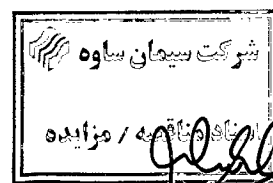 شرکت سیمان ساوه
اسناد مناقصه / مزایده